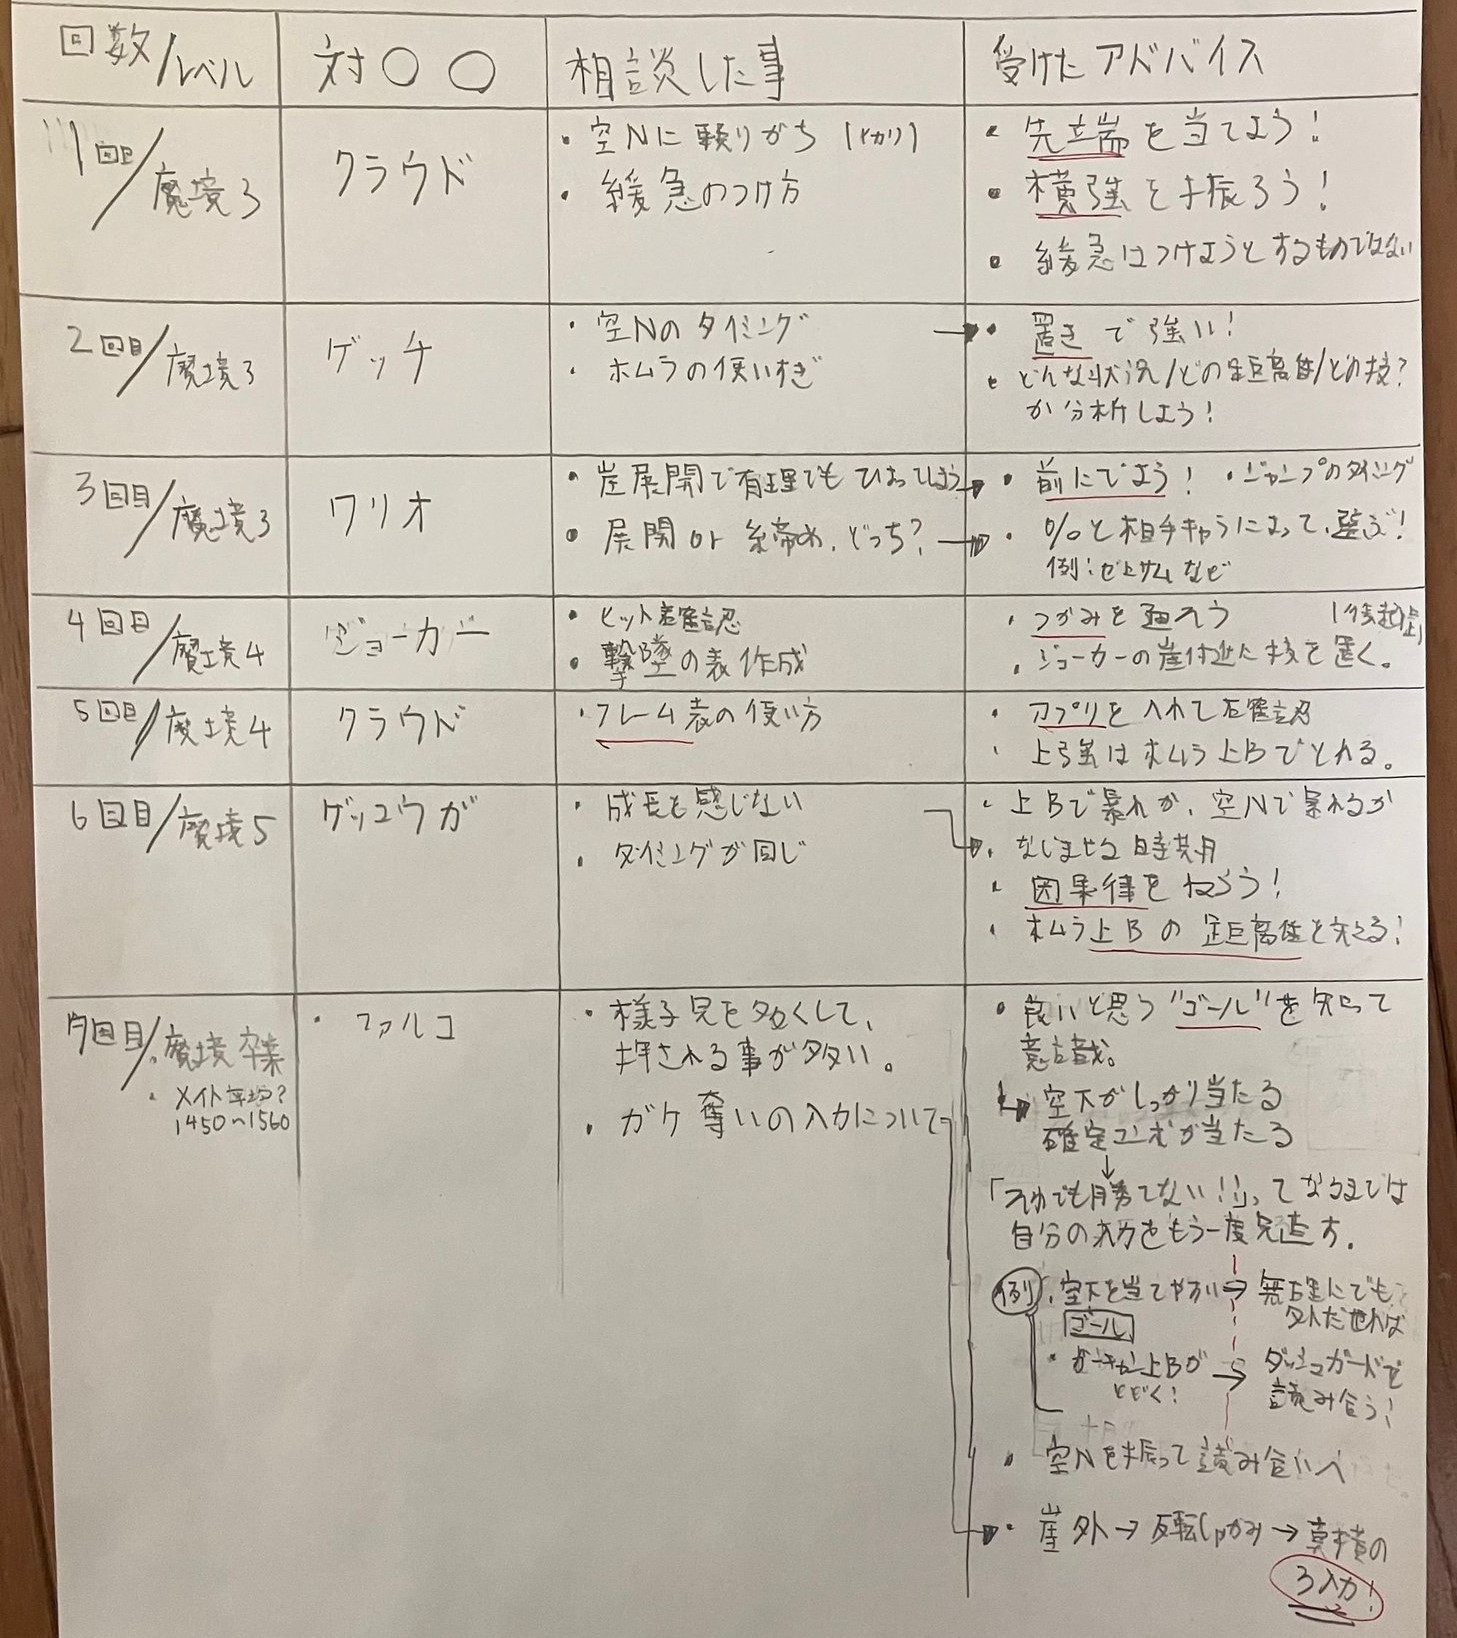 回数/レベル
対〇〇
相談した事
受けたアドバイス
1回目/魔境3
クラウド
・空Nに頼りがち (ヒカリ)
・緩急のつけ方
・先立端を当てよう!
・横強を振ろう!
・緩急はつけようとするものではない
2回目/魔境3
ゲッチ
・空Nのタイミング
・ホムラの使いすぎ
・置きで強い!
・どんな状況/どの距離/どの技?
か分析しよう!
3回目/魔境3
ワリオ
・崖展開で有理でも ひよってしまう
・展開 or 糸締め、どっち?
・前にでよう! ・ジャンプのタイミング
・%と相手キャラによって、選ぶ!
例:ゼトサムなど
4回目/魔境4
ジョーカー
・ヒット確認
・撃墜の表作成
・つかみを通そう
・ジョーカーの崖付近に技を置く。
5回目/魔境4
クラウド
・フレーム表の使い方
・アプリを入れて確認
・上強はホムラ上Bでとれる。
6回目/魔境5
ゲッコウガ
・成長を感じない
・タイミングが同じ
・上Bで暴れか、空Nで暴れるか
・なじませる時期
・因果律をねらう!
・ホムラ上Bの距離を考える!
7回目/魔境卒業
・メイト平均?
1450~1560
・ファルコ
・様子見を多くして、
押される事が多い。
・ガケ奪いの入力について
・良いと思う"ゴール"を知って
意識。
空下がしっかり当たる
確定コンボが当たる
↓
「それでも勝てない!!」ってなるまでは
自分の入力をもう一度見直す。
例、空下を当てやすい→無理にでも
外だせれば
ゴール
・ガーキャン上Bが→ダッシュガードで
とどく! 読み合う!
・空Nを振って読み合いへ
・崖外→反転しゃがみ→真横の
3入力!